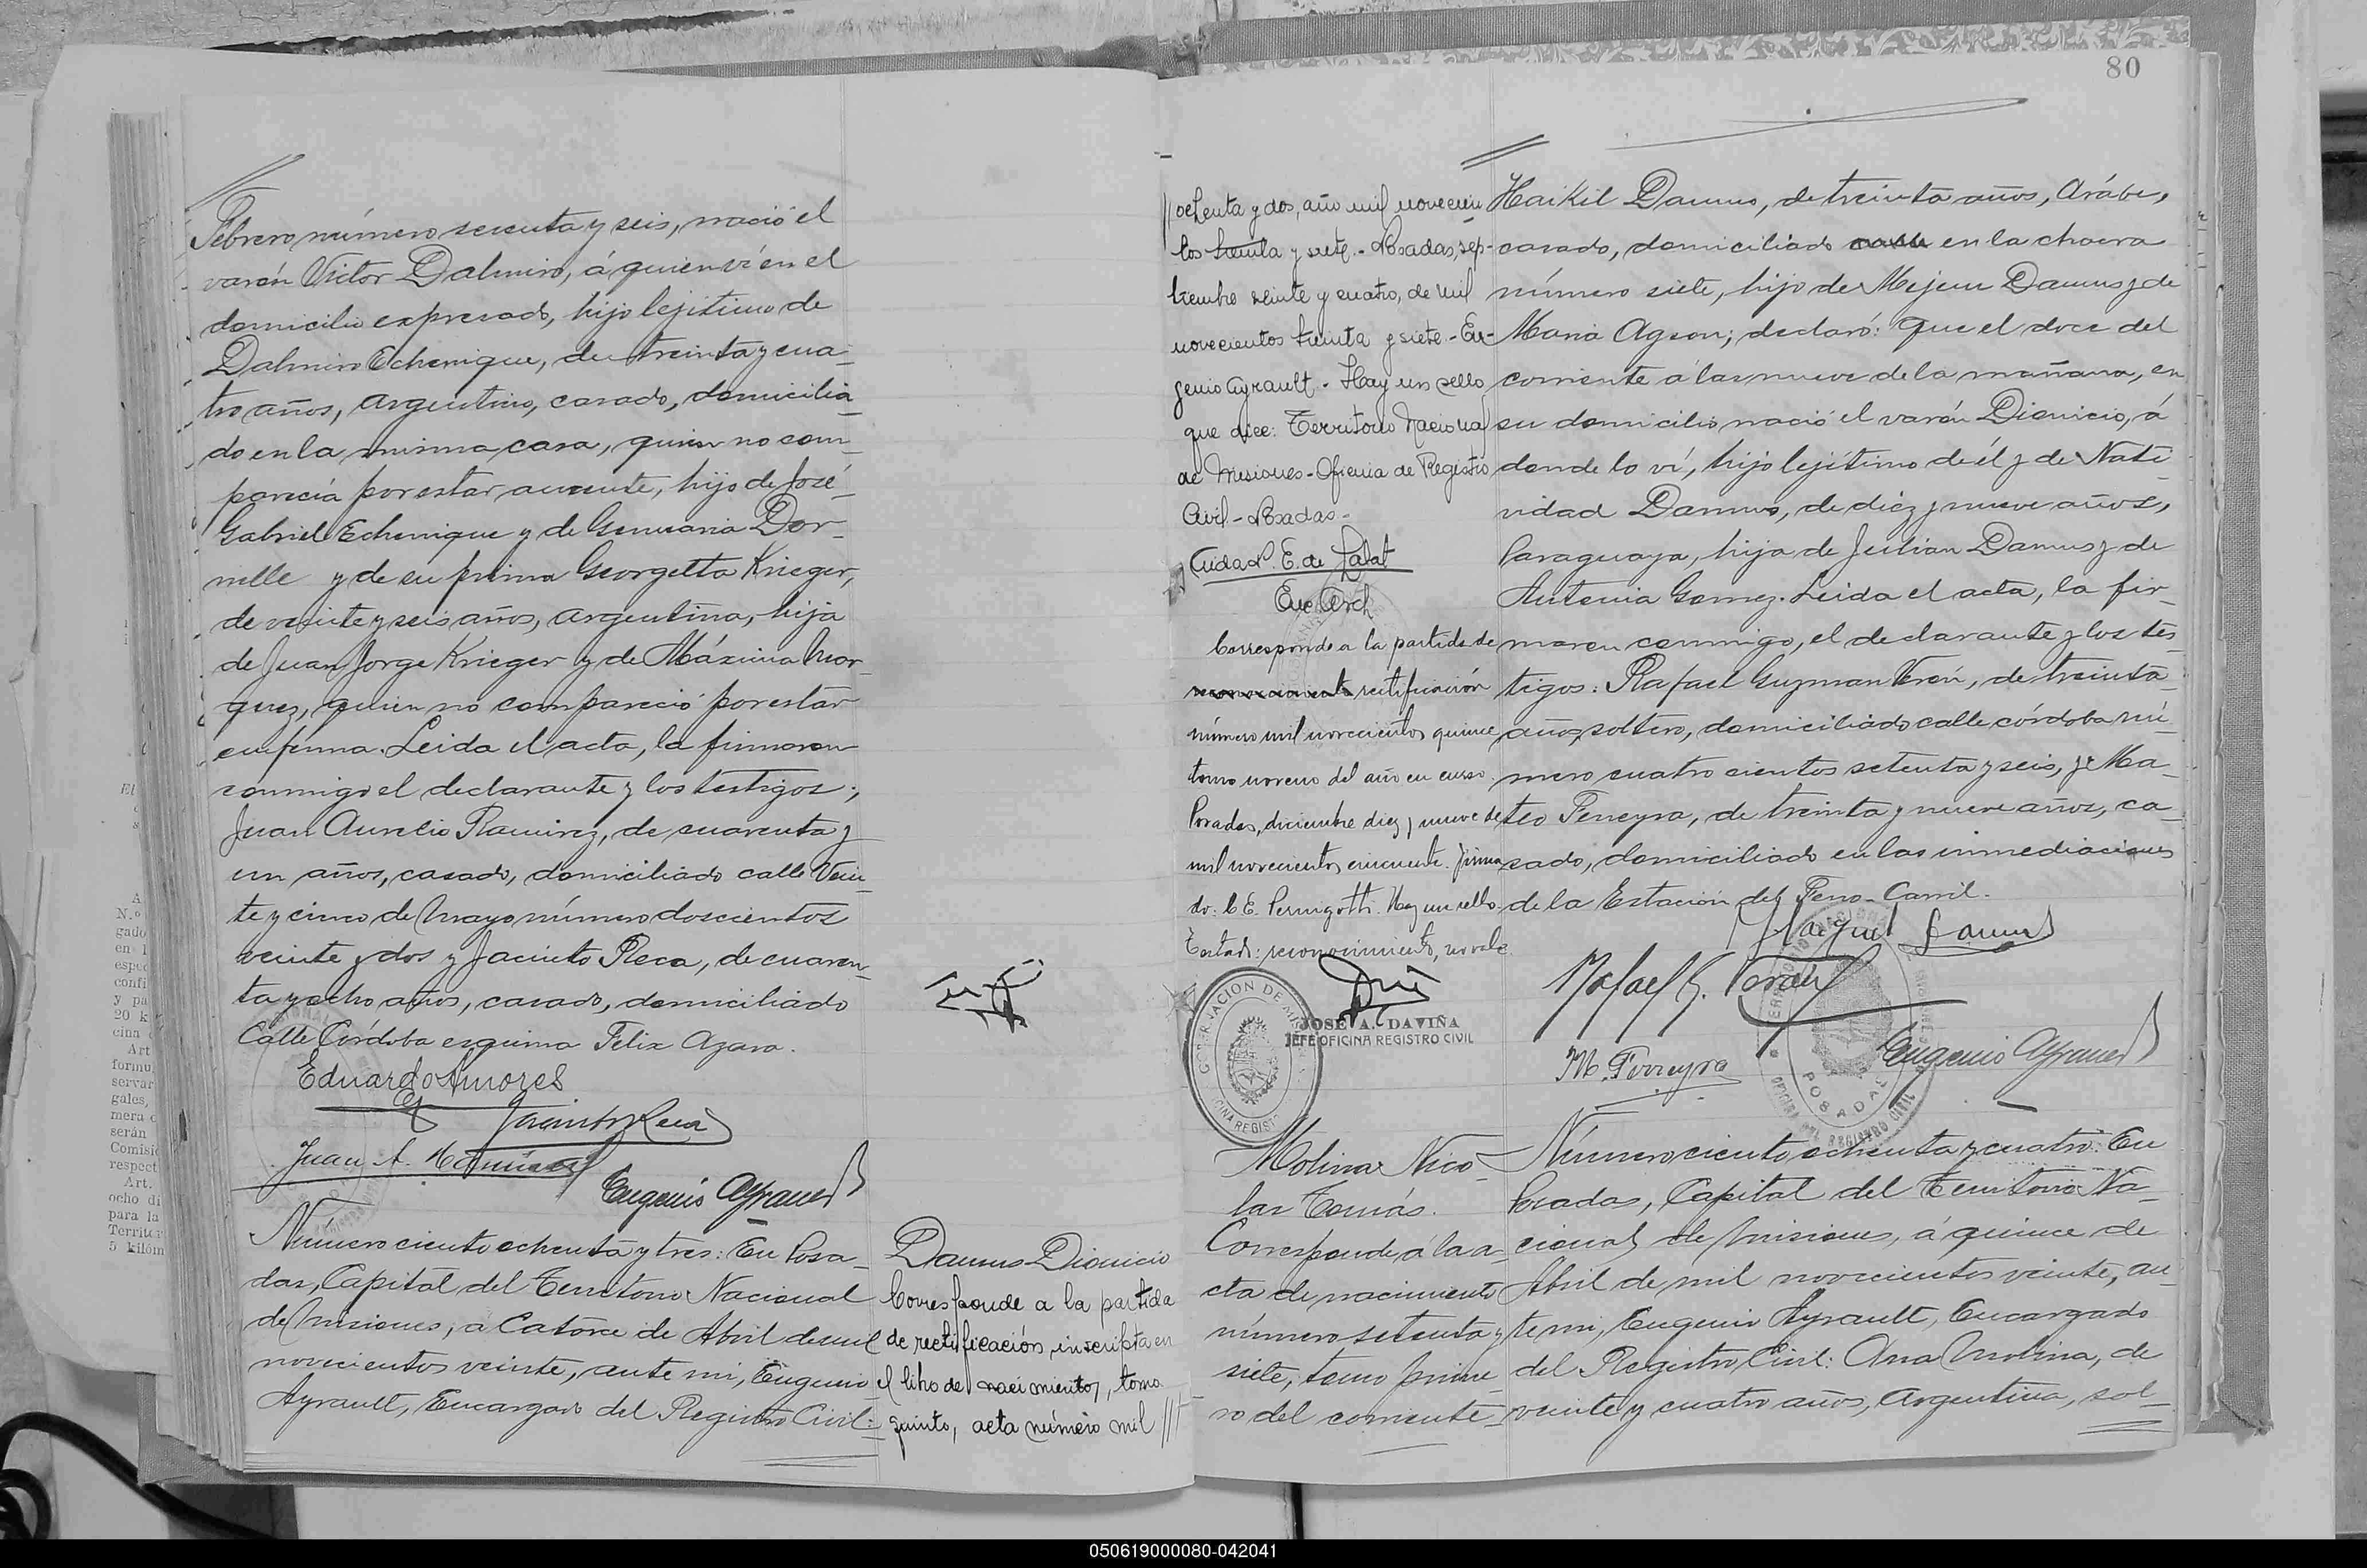 Febrero número sesenta y seis, nació el
varón Victor Dalmiro, á quien ví en el
domicilio expresado, hijo lejitimo de
Dalmiro Echenique, de treinta y cua-
tro años, argentino, casado, domicilia-
do en la misma casa, quien no com-
parecía por estar ausente, hijo de José
Gabriel Echenique y de Genuaria Dor-
nelle y de su prima Georgetta Krieger,
de veinte y seis años, argentina, hija
de Juan Jorge Krieger y de Máxima Mar-
quez, quien no compareció por estar
enferma. Leida el acta, la firmaron
conmigo el declarante y los testigos;
Juan Aurelio Ramirez, de cuarenta y
un años, casado, domiciliado calle Vein-
te y cinco de Mayo número doscientos
veinte y dos y Jacinto Reca, de cuaren-
ta y ocho años, casado, domiciliado
Calle Córdoba esquina Felix Azara.
Eduardo Amores
Jacinto Reca
Juan A. Ramirez
Eugenio Ayrault
Número ciento ochenta y tres: En Posa-
das, Capital del Territorio Nacional
de Misiones, a Catorce de Abril de mil
novecientos veinte, ante mi, Eugenio
Ayrault, Encargado del Registro Civil:
Damus Dionicio
Corresponde a la partida
de rectificación, inscripta en
el libro de nacimientos, tomo
quinto, acta número mil //
80
// ochenta y dos, año mil novecien
tos treinta y siete.- Posadas, sep-
tiembre veinte y cuatro, de mil
novecientos treinta y siete.- Eu-
genio Ayrault.- Hay un sello
que dice: Territorio Nacional
de Misiones-Oficina de Registro
Civil-Posadas-
Corresponde a la partida de
reconocimiento rectificación
número mil novecientos quince
tomo noveno del año en curso.
Posadas, diciembre diez y nueve de
mil novecientos cincuenta. firma
do: C. E. Pernigotti. Hay un sello.
Testado: reconocimiento, no vale.
JOSÉ A. DAVIÑA
JEFE OFICINA REGISTRO CIVIL
Haikil Damus, de treinta años, Arábe,
casado, domiciliado calle en la chacra
número siete, hijo de Mejem Damus y de
Maria Ageon; declaró: que el doce del
corriente á las nueve de la mañana, en
su domicilio nació el varón Dionicio, á
donde lo ví, hijo lejítimo de él y de Nati
vidad Damus, de diez y nueve años,
Paraguaya, hija de Julian Damus y de
Antonia Gomez. Leida el acta, la fir-
maron conmigo, el declarante y los tes
tigos: Rafael Guzman Verón, de treinta
años, soltero, domiciliado calle córdoba nú-
mero cuatro cientos setenta y seis, y Ma-
teo Ferreyra, de treinta y nueve años, ca-
sado, domiciliado en las inmediaciones
de la Estación del Ferro-Carril.
Rafael G. Verón
M. Ferreyra
Eugenio Ayrault
Molina Nico-
las Tomás.
Corresponde á la a-
cta de nacimiento
número setenta y
siete, tomo prime-
ro del corriente-
Número ciento ochenta y cuatro: En
Posadas, Capital del Territorio Na-
cional de Misiones, á quince de
Abril de mil novecientos veinte, an-
te mi, Eugenio Ayrault, Encargado
del Registro Civil: Ana Molina, de
veinte y cuatro años, argentina, sol-
050619000080-042041